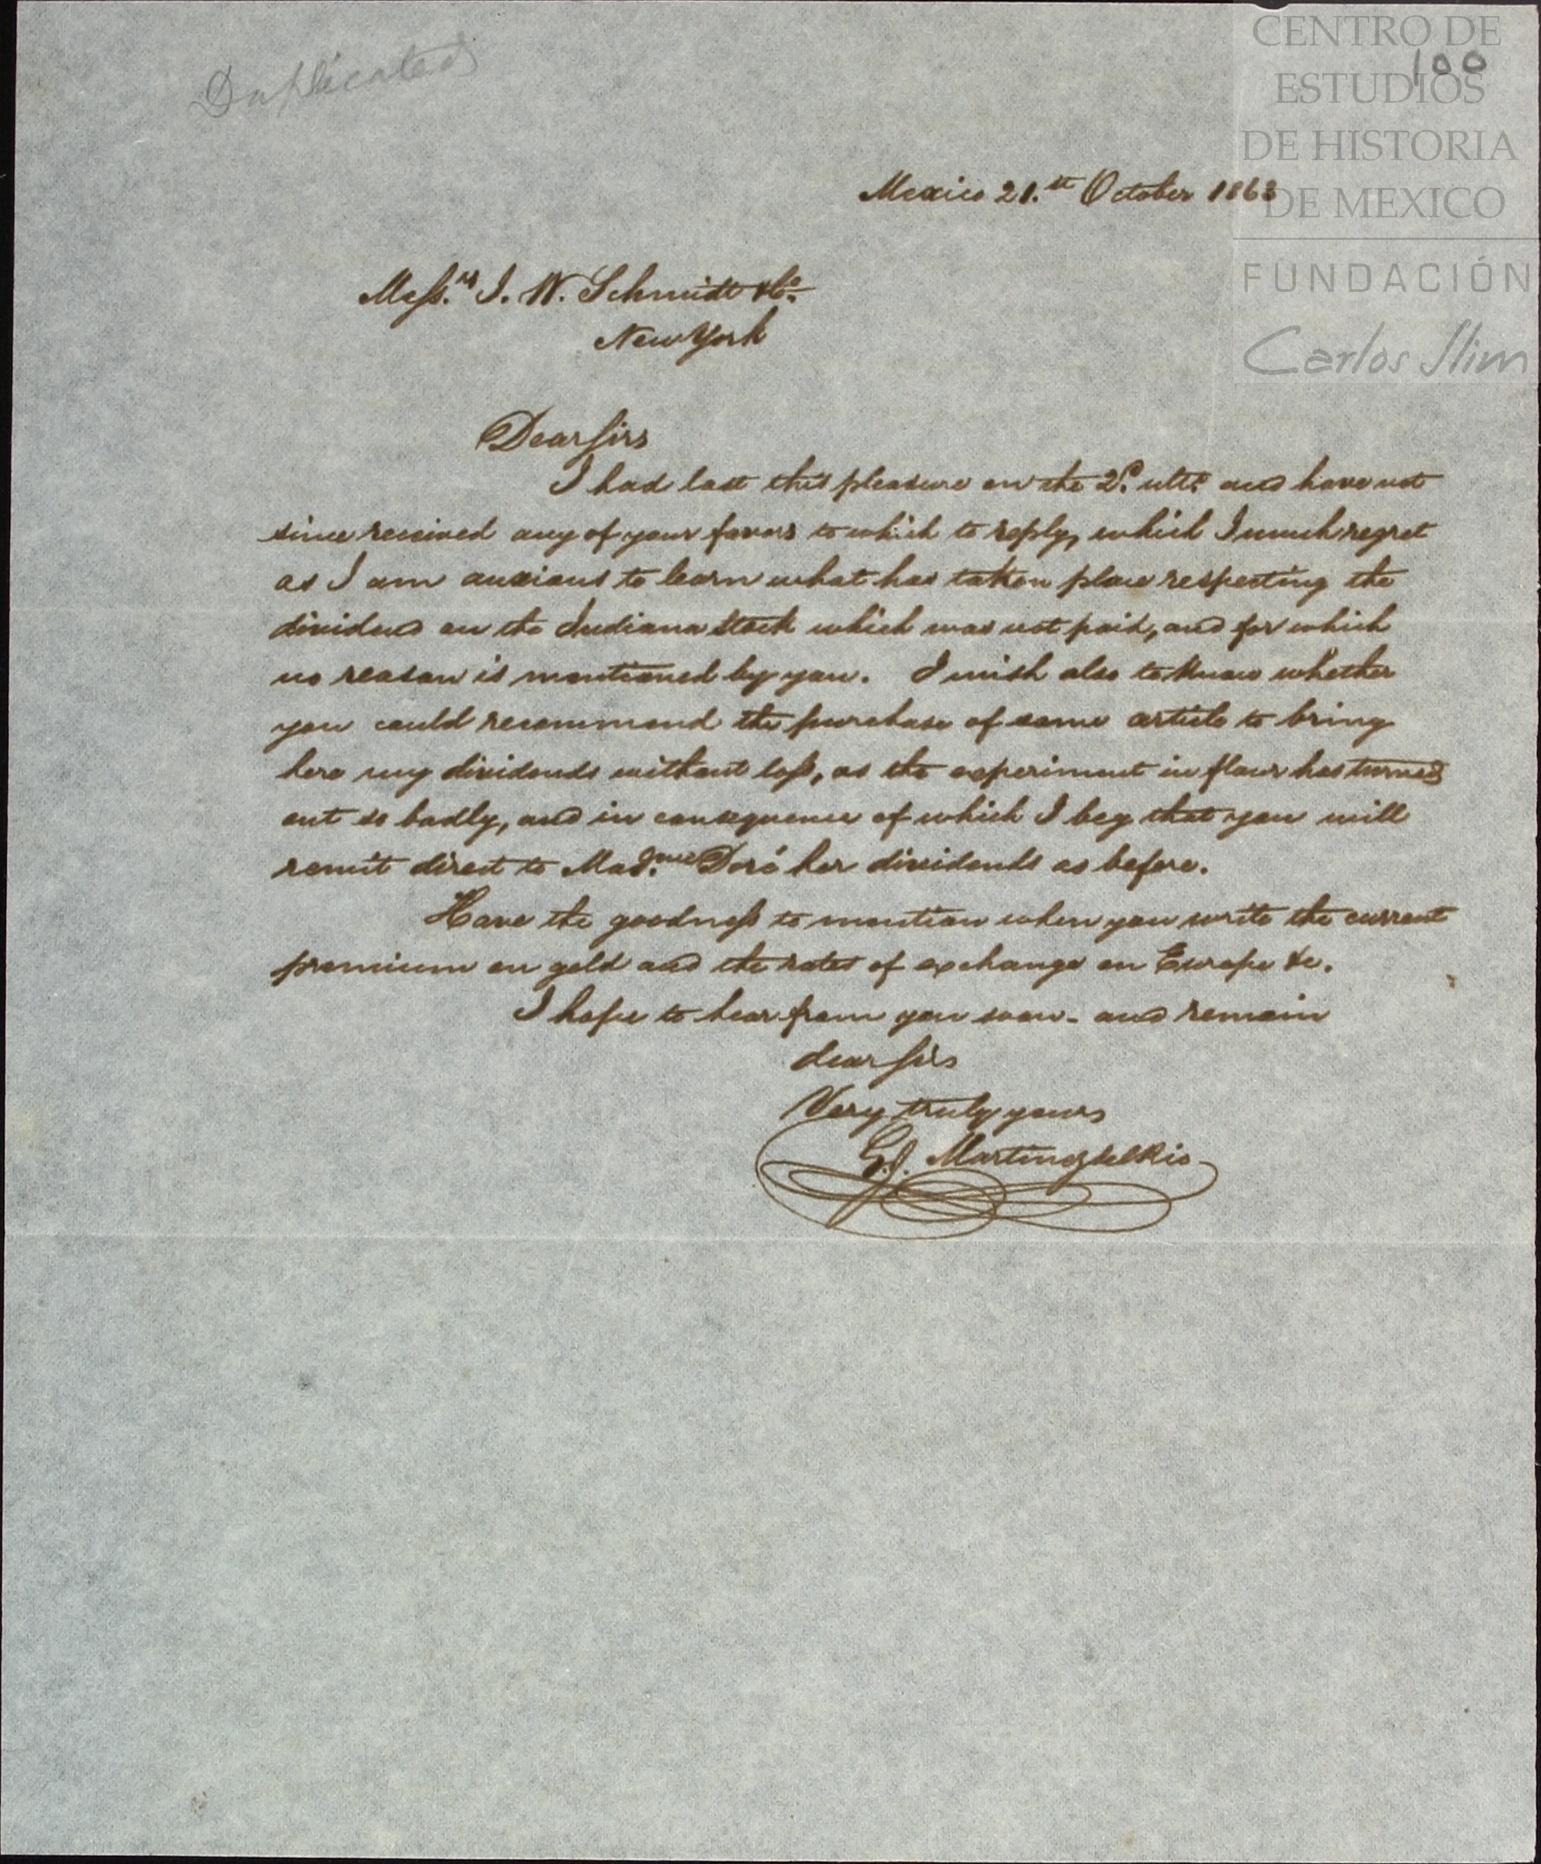 Duplicated
100
CENTRO DE
ESTUDIOS
DE HISTORIA
DE MEXICO
FUNDACIÓN
Carlos Slim
Mexico 21.st October 1863
Mess.rs J. W. Schmidt & Co.
New York
Dear Sirs
I had last this pleasure on the 2o. ulto. and have not
since received any of your favors to which to reply, which I much regret
as I am anxious to learn what has taken place respecting the
dividend on the Indiana Stock which was not paid, and for which
no reason is mentioned by you. I wish also to know whether
you could recommend the purchase of some article to bring
here my dividends without loss, as the experiment in flour has turned
out so badly, and in consequence of which I beg that you will
remit direct to Mad.me Doré her dividends as before.
Have the goodness to mention when you write the current
premium on gold and the rates of exchange on Europe &c.
I hope to hear from you soon - and remain
dear Sirs
Very truly yours
G. J. Martinez del Rio